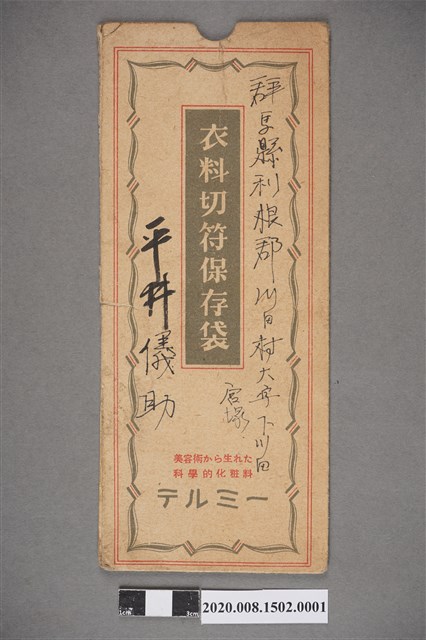 群馬縣利根郡川田村大字下川田
宮塚
衣料切符保存袋
平井儀助
美容術から生れた
科學的化粧料
テルミー
1cm
3cm
2020.008.1502.0001